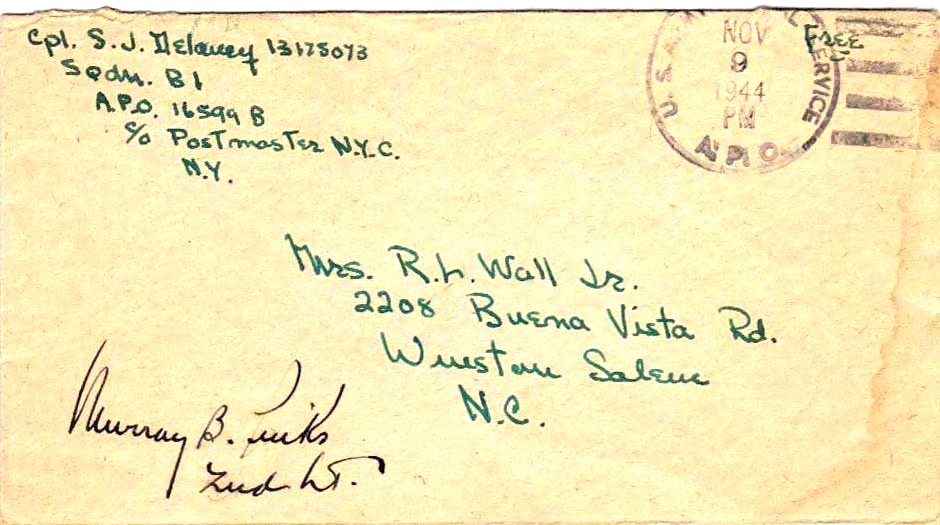 Cpl. S. J. Delaney 13175073
Sqdn. B 1
A.P.O. 16599 B
c/o Postmaster N.Y.C.
N.Y.
U.S. SERVICE
NOV
9
1944
PM
A.P.O.
Free
Mrs. R.L. Wall Jr.
2208 Buena Vista Rd.
Winston Salem
N.C.
Murray B.
2nd Lt.